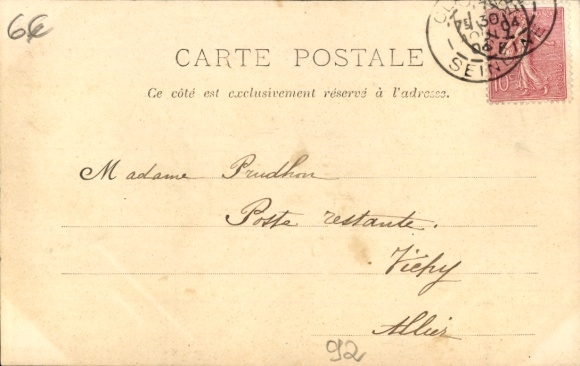 6€
CARTE POSTALE
Ce côté est exclusivement réservé à l'adresse.
10
SEINE
Madame Prudhon
Poste restante.
Vichy
Allier
92